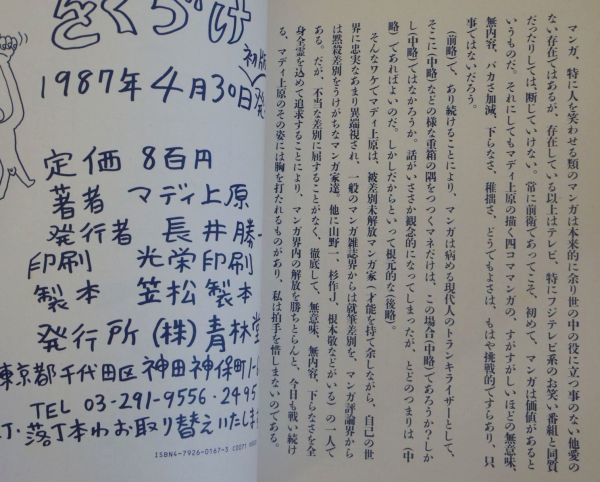 マンガ、特に人を笑わせる類のマンガは本来的に余り世の中の役に立つ事のない他愛の
ない存在ではあるが、存在している以上はテレビ、特にフジテレビ系のお笑い番組と同質
だったりしては、断じていけない。常に前衛であってこそ、初めて、マンガは価値があると
いうものだ。それにしてもマディ上原の描く四コママンガの、すがすがしいほどの無意味、
無内容、バカさ加減、下らなさ、稚拙さ、どうでもよさは、もはや挑戦的ですらあり、只
事ではないだろう。
(前略)で、あり続けることにより、マンガは病める現代人のトランキライザーとして、
そこに(中略)などの様な重箱の隅をつつくマネだけは、この場合(中略)であろうか?しか
し(中略)ではなかろうか。話がいささか観念的になってしまったが、とどのつまりは(中
略)であればよいのだ。しかしだからといって根元的な(後略)。
そんなワケでマディ上原は、被差別未解放マンガ家(才能を持て余しながら、自己の世
界に忠実なあまり異端視され、一般のマンガ雑誌界からは就筆差別を、マンガ評論界から
は黙殺差別をうけがちなマンガ家達。他に山野一、杉作J、根本敬などがいる)の一人で
ある。だが、不当な差別に屈することがなく、徹底して、無意味、無内容、下らなさを全
身全霊を込めて追求することにより、マンガ界内の解放を勝ちとらんと、今日も戦い続け
る、マディ上原のその姿には胸を打たれるものがあり、私は拍手を惜しまないのである。
おくづけ
1987年4月30日初版発
定価 8百円
著者 マディ上原
発行者 長井勝一
印刷 光栄印刷
製本 笠松製本
発行所 (株)青林堂
東京都千代田区神田神保町1-
TEL 03-291-9556・2495
丁・落丁本はお取り替えいたしま
ISBN4-7926-0167-3